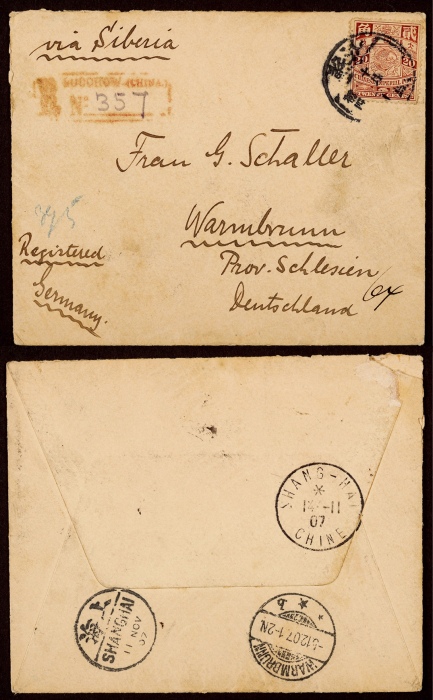 via Siberia
R SOOCHOW (CHINA)
No 357
貳 角
20
Frau G. Schaller
Warmbrunn
Prov. Schlesien
Deutschland
395
Registered
Germany.
SHANG-HAI
11
07
CHINE
上海
SHANGHAI
11 NOV
07
b
12.07.1-2N.
WARMBRUNN